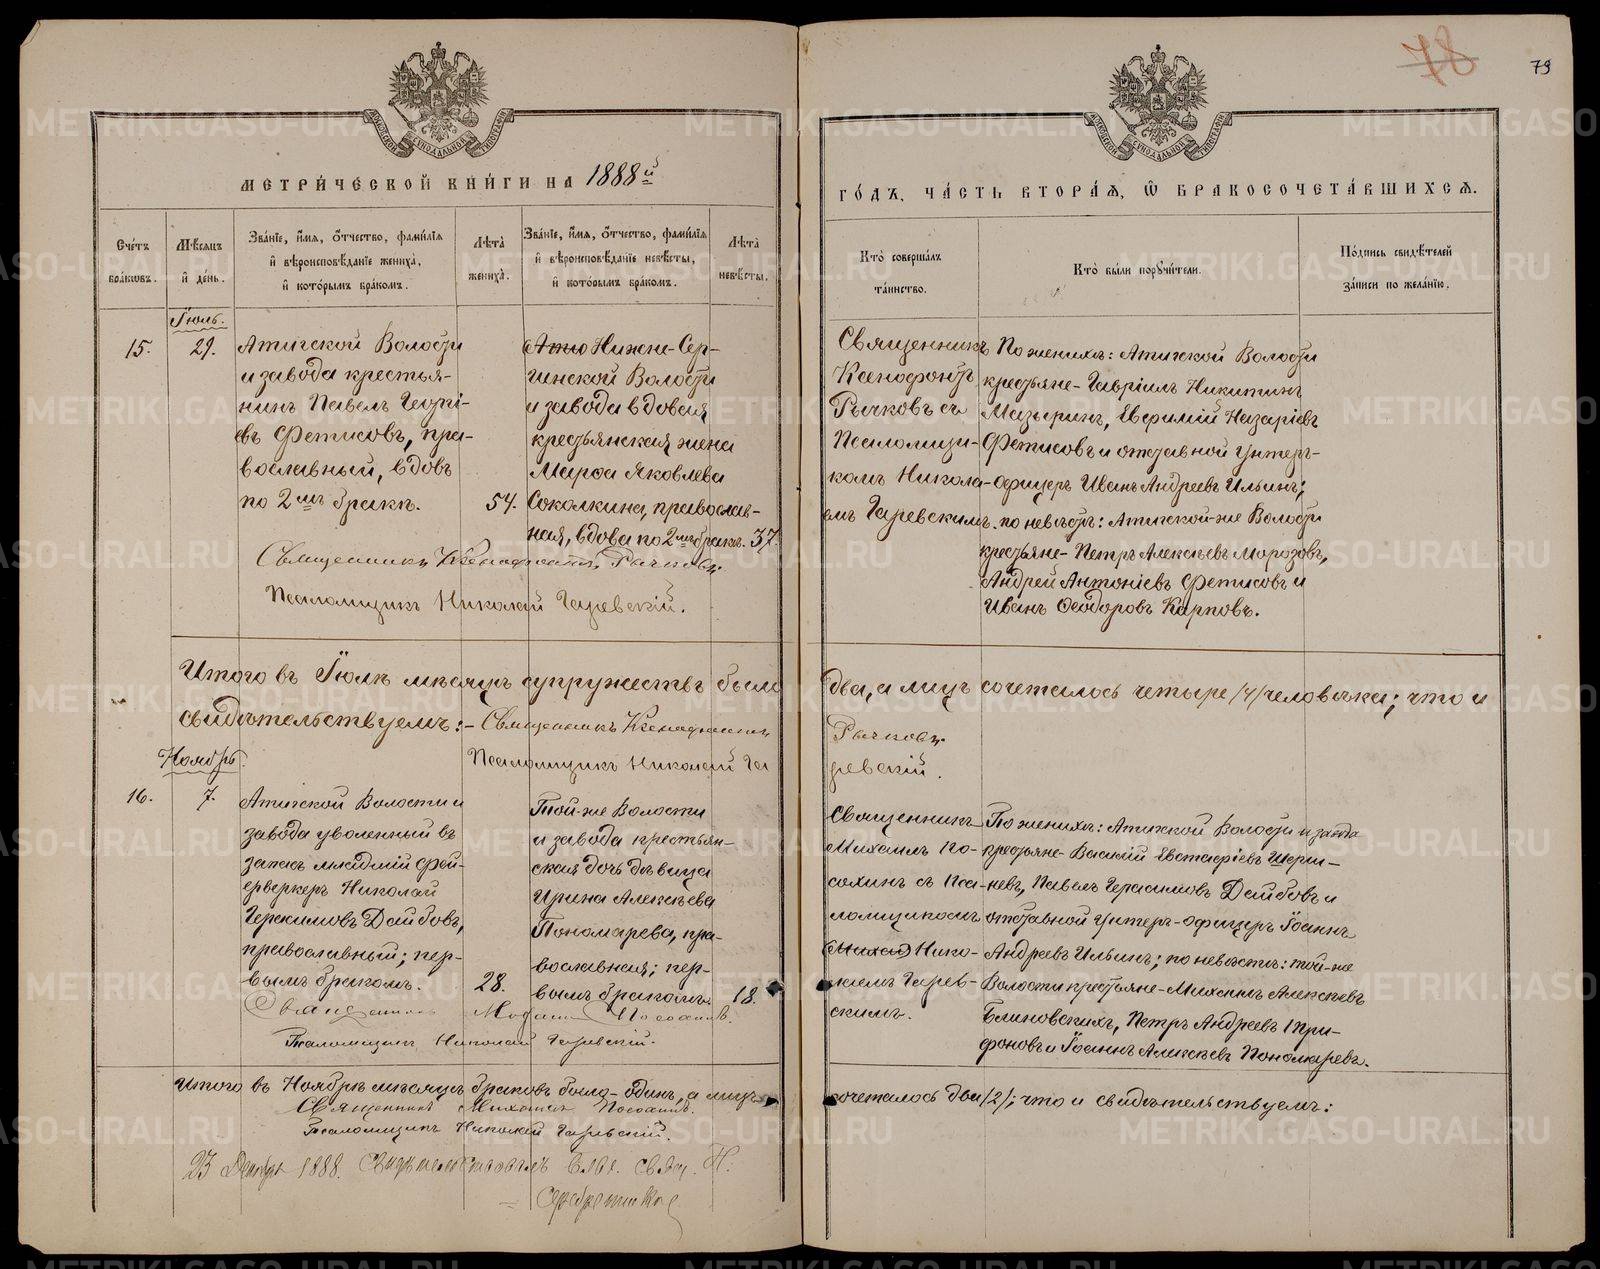 78
79
МЕТРИЧЕСКОЙ КНИГИ НА 1888й
ГОДЪ, ЧАСТЬ ВТОРАЯ, Ѡ БРАКОСОЧЕТАВШИХСЯ.
Счетъ браковъ.
Мѣсяцъ и день.
Званіе, имя, отчество, фамилія и вѣроисповѣданіе жениха, и которымъ бракомъ.
Лѣта жениха.
Званіе, имя, отчество, фамилія и вѣроисповѣданіе невѣсты, и которымъ бракомъ.
Лѣта невѣсты.
Кто совершалъ таинство.
Кто были поручители.
Подпись свидѣтелей записи по желанію.
Іюль.
15.
29.
Атигской Волости
и завода крестья-
нинъ Павелъ Георгі-
евъ Фетисовъ, пра-
вославный, вдовъ
по 2мъ бракѣ.
54.
Нижне-Сер-
гинской Волости
и завода вдовая
крестьянская жена
Марѳа Яковлева
Соколкина, православ-
ная, вдова по 2мъ бракѣ.
37.
Священникъ
Ксенофонтъ
Рычковъ съ
Псаломщи-
комъ Никола-
емъ Гаревскимъ.
По женихѣ: Атигской Волости
крестьяне - Гавріилъ Никитинъ
Мазыринъ, Евфимій Назаріевъ
Фетисовъ и отставной унтеръ-
офицеръ Иванъ Андреевъ Ильинъ;
по невѣстѣ: Атигской-же Волости
крестьяне - Петръ Алексѣевъ Морозовъ,
Андрей Антоніевъ Фетисовъ и
Иванъ Ѳеодоровъ Карповъ.
Священникъ Ксенофонтъ Рычковъ
Псаломщикъ Николай Гаревскій.
Итого въ Іюлѣ мѣсяцѣ супружествъ было два, а лицъ сочеталось четыре /4/ человѣка; что и
свидѣтельствуемъ: - Священникъ Ксенофонтъ Рычковъ
Псаломщикъ Николай Гаревскій.
Ноябрь.
16.
7.
Атигской Волости и
завода уволенный въ
запасъ младшій фей-
ерверкеръ Николай
Герасимовъ Даибовъ,
православный; пер-
вымъ бракомъ.
28.
Той-же Волости
и завода крестьян-
ская дочь дѣвица
Ирина Алексѣева
Пономарева, пра-
вославная; пер-
вымъ бракомъ.
18.
Священникъ
Михаилъ По-
сохинъ съ Пса-
ломщикомъ
Нико-
лаемъ Гарев-
скимъ.
По женихѣ: Атигской Волости и завода
крестьяне - Василій Евстафіевъ
Павелъ Герасимовъ Даибовъ и
отставной унтеръ-офицеръ Іоаннъ
Андреевъ Ильинъ; по невѣстѣ: той-же
Волости крестьяне - Михаилъ Алексѣевъ
Блиновскихъ, Петръ Андреевъ Три-
фоновъ и Іоаннъ Алексѣевъ Пономаревъ.
Священникъ Михаилъ Посохинъ.
Псаломщикъ Николай Гаревскій.
Итого въ Ноябрѣ мѣсяцѣ браковъ было - одинъ, а лицъ сочеталось два /2/; что и свидѣтельствуемъ:
Священникъ Михаилъ Посохинъ.
Псаломщикъ Николай Гаревскій.
23 Декабря 1888. Свидѣтельствовалъ Благ. Свящ. Н.
Серебренниковъ
METRIKI.GASO-URAL.RU